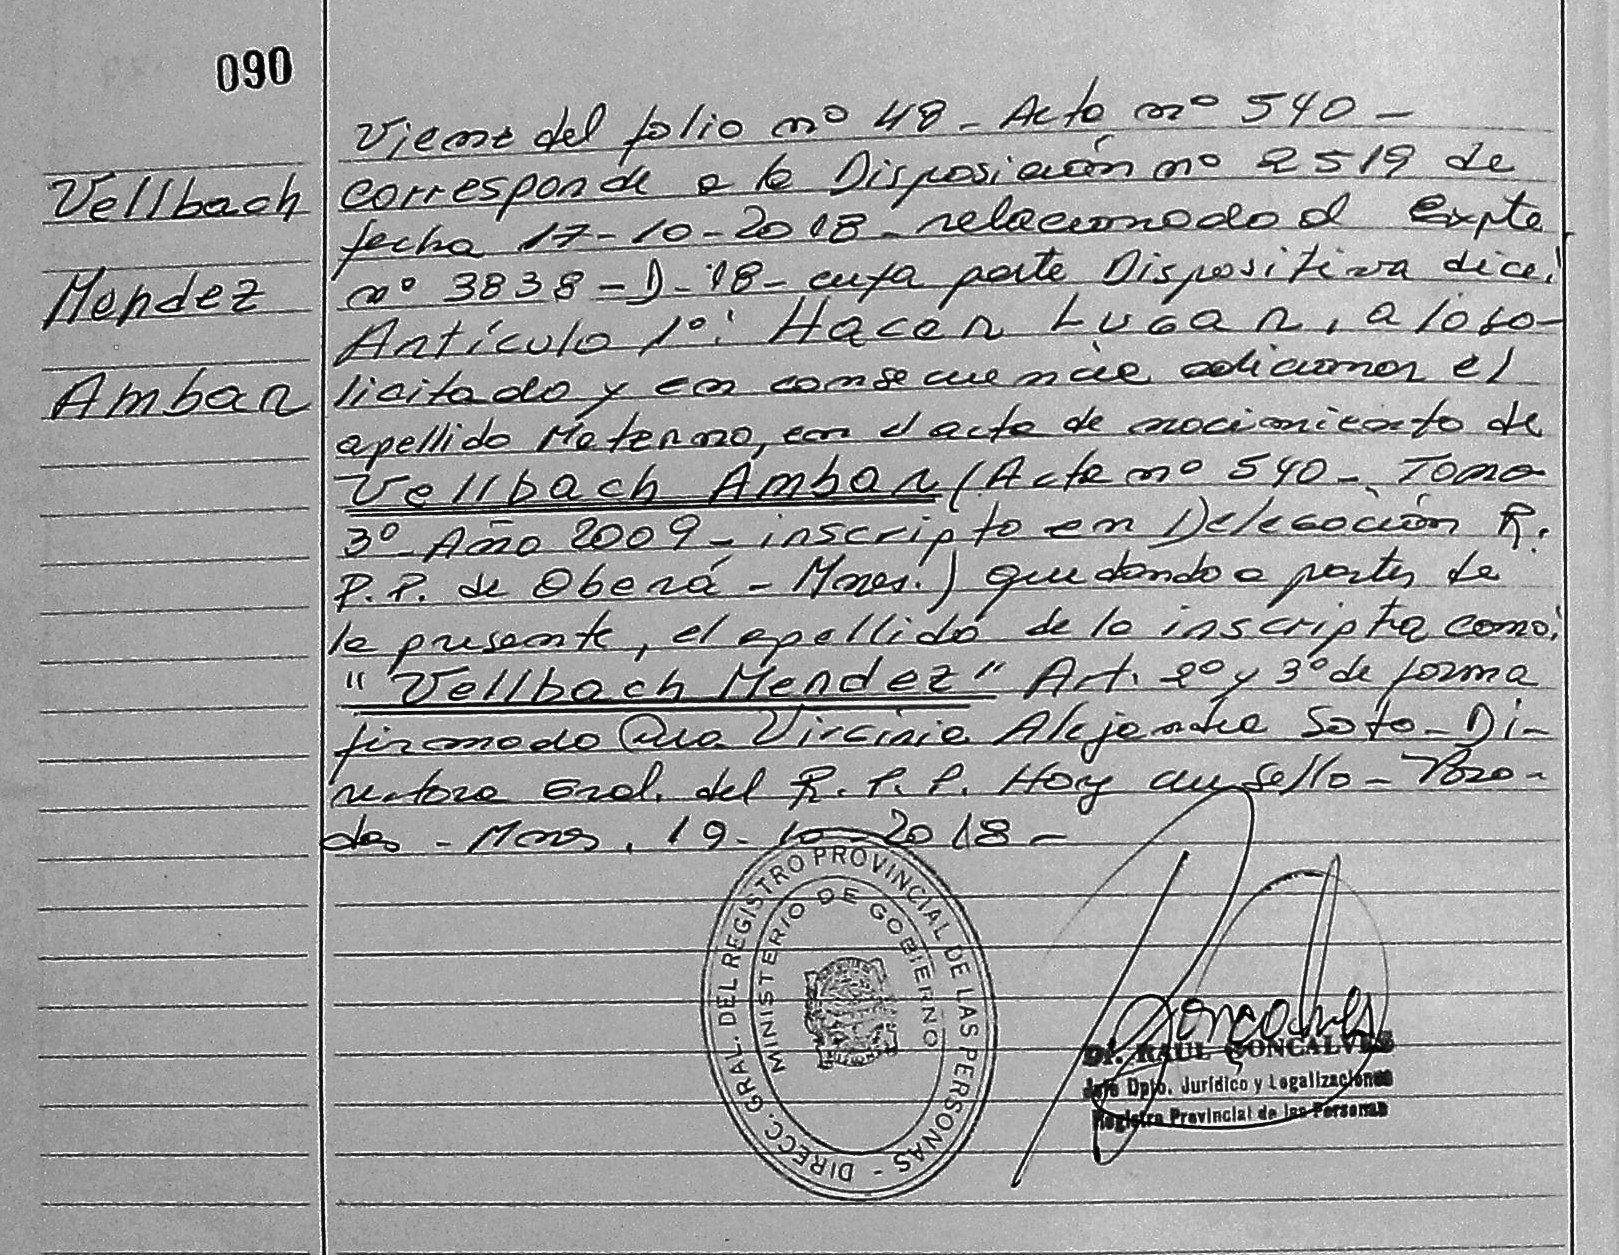 090
Vellbach
Mendez
Ambar
Viene del folio nº 48 - Acta nº 540 -
corresponde a la Disposición nº 2519 de
fecha 17-10-2018 - relacionado al Expte
nº 3838-D-18 - cuya parte Dispositiva dice:
Artículo 1º: Hacer Lugar, a lo so-
licitado y en consecuencia adicionar el
apellido Materno, en el acta de nacimiento de
Vellbach Ámbar (Acta nº 540 - Tomo
3º - Año 2009 - inscripto en Delegación R.
P.P. de Oberá - Mnes.) quedando a partir de
la presente, el apellido de la inscripta como:
"Vellbach Mendez" Art. 2º y 3º de forma
firmado Dra Virginia Alejandra Soto - Di-
rectora Gral. del R.P.P. Hay un sello - Posa-
das - Mnes, 19-10-2018 -
DIRECC. GRAL. DEL REGISTRO PROVINCIAL DE LAS PERSONAS -
MINISTERIO DE GOBIERNO
Goncalves
Dr. RAUL GONCALVES
Jefe Dpto. Jurídico y Legalizaciones
Registro Provincial de las Personas